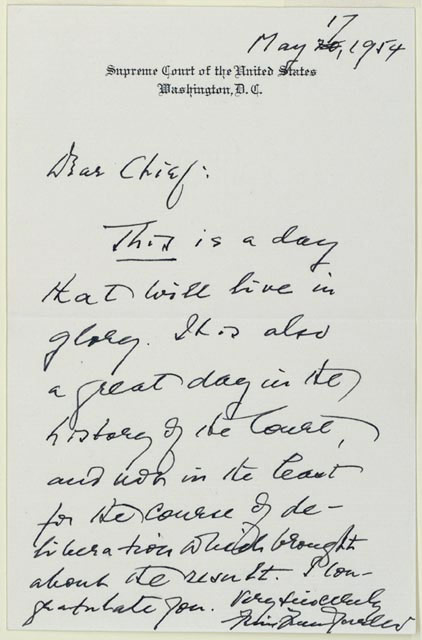 17
May 20, 1954
Supreme Court of the United States
Washington, D. C.
Dear Chief:
This is a day
that will live in
glory. It is also
a great day in the
history of the Court,
and not in the least
for the course of de-
liberation which brought
about the result. I con-
gratulate you. Very sincerely
Felix Frankfurter